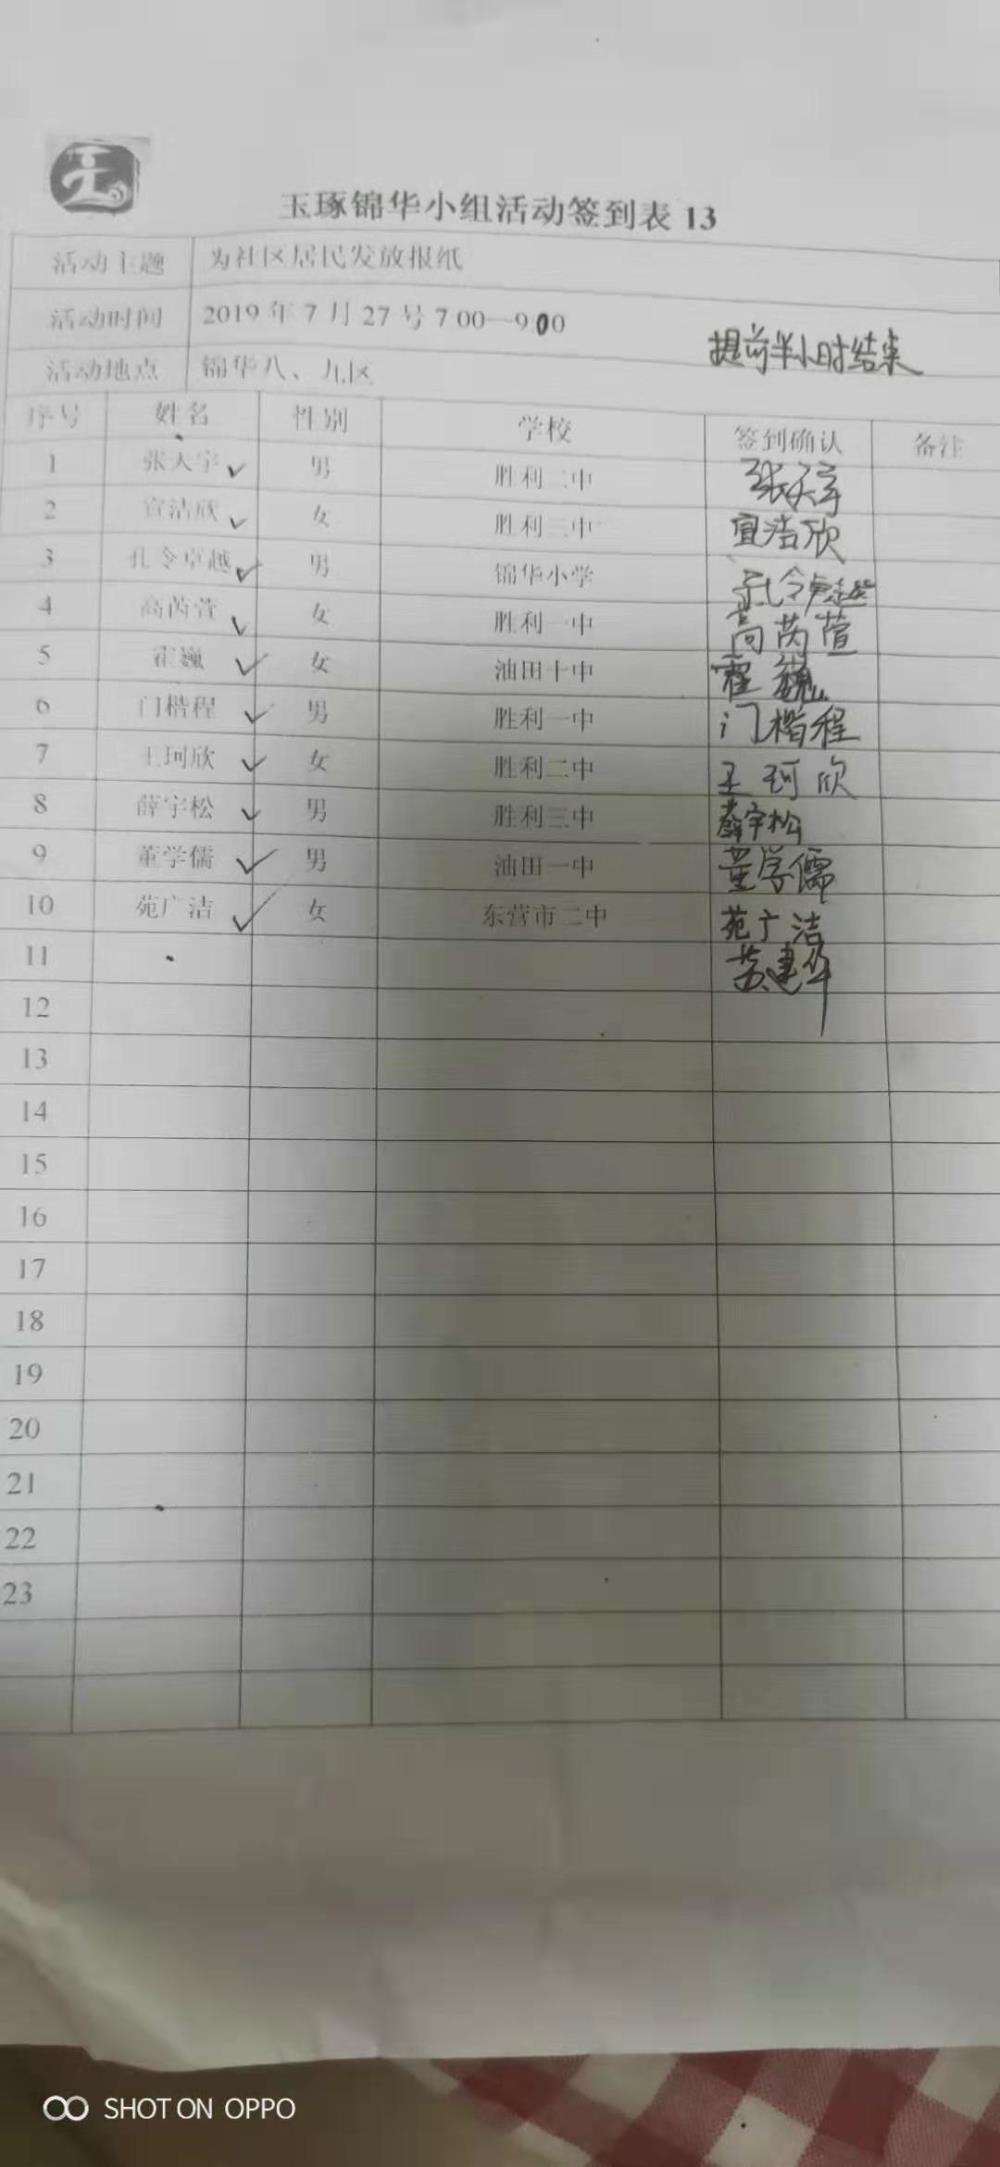 玉琢锦华小组活动签到表 13
活动主题 为社区居民发放报纸
活动时间 2019 年 7 月 27 号 7 00—9 00
提前半小时结束
活动地点 锦华八、九区
序号 姓名 性别 学校 签到确认 备注
1 张天宇 ✓ 男 胜利二中 张天宇
2 宣洁欣 ✓ 女 胜利三中 宣洁欣
3 孔令卓越 ✓ 男 锦华小学 孔令卓越
4 高芮萱 ✓ 女 胜利一中 高芮萱
5 霍巍 ✓ 女 油田十中 霍巍
6 门楷程 ✓ 男 胜利一中 门楷程
7 王珂欣 ✓ 女 胜利二中 王珂欣
8 薛宇松 ✓ 男 胜利三中 薛宇松
9 董学儒 ✓ 男 油田一中 董学儒
10 苑广洁 ✓ 女 东营市二中 苑广洁
11 苏建华
12
13
14
15
16
17
18
19
20
21
22
23
SHOT ON OPPO